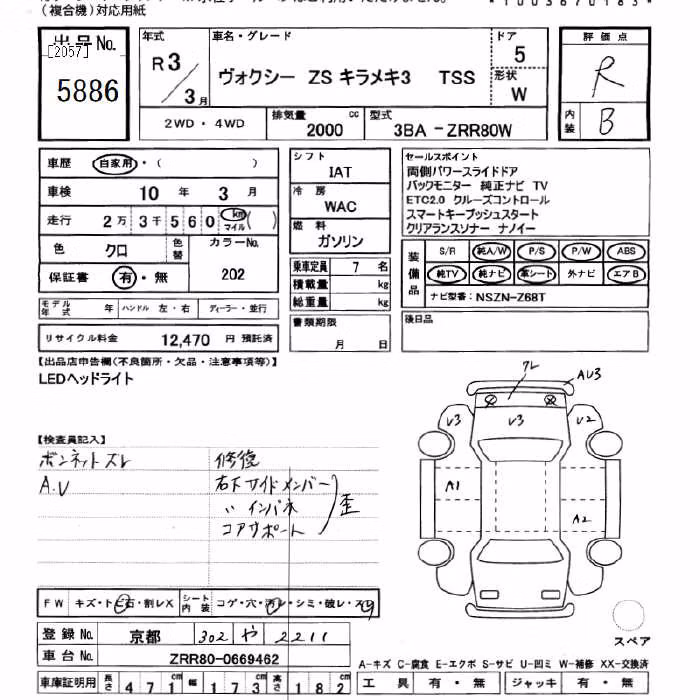 (複合機)対応用紙
*1003670183*
出品No. [2057] 5886
年式 R3/3月
車名・グレード
ヴォクシー ZS キラメキ3 TSS
ドア 5
形状 W
評価点 R
内装 B
2WD・4WD
排気量 2000 cc
型式 3BA-ZRR80W
車歴 自家用・( )
車検 10年 3月
走行 2万3千560 km マイル ( )
色 クロ 色替 カラーNo. 202
保証書 有・無
モデル年式 年 ハンドル 左・右 ディーラー・並行
リサイクル料金 12,470 円 預託済
シフト IAT
冷房 WAC
燃料 ガソリン
乗車定員 7 名
積載量 kg
総重量 kg
書類期限 月 日
セールスポイント
両側パワースライドドア
バックモニター 純正ナビ TV
ETC2.0 クルーズコントロール
スマートキープッシュスタート
クリアランスソナー ナノイー
装備品 S/R 純A/W P/S P/W ABS
純TV 純ナビ 革シート 外ナビ エアB
ナビ型番: NSZN-Z68T
後日品
【出品店申告欄(不良箇所・欠品・注意事項等)】
LEDヘッドライト
【検査員記入】
ボンネットズレ
A.U
修復
右下サイドメンバー
〃 インパネ
コアサポート
歪
ワレ
AU3
U3
U3
U2
A1
A2
スペア
FW キズ・トビ石・割レX シート内装 コゲ・穴・汚レ・シミ・破レ・スレ
登録No. 京都 302 や 2211
車台No. ZRR80-0669462
車庫証明用 長さ 471cm 幅 173cm 高さ 182cm
A-キズ C-腐食 E-エクボ S-サビ U-凹ミ W-補修 XX-交換済
工具 有・無 ジャッキ 有・無